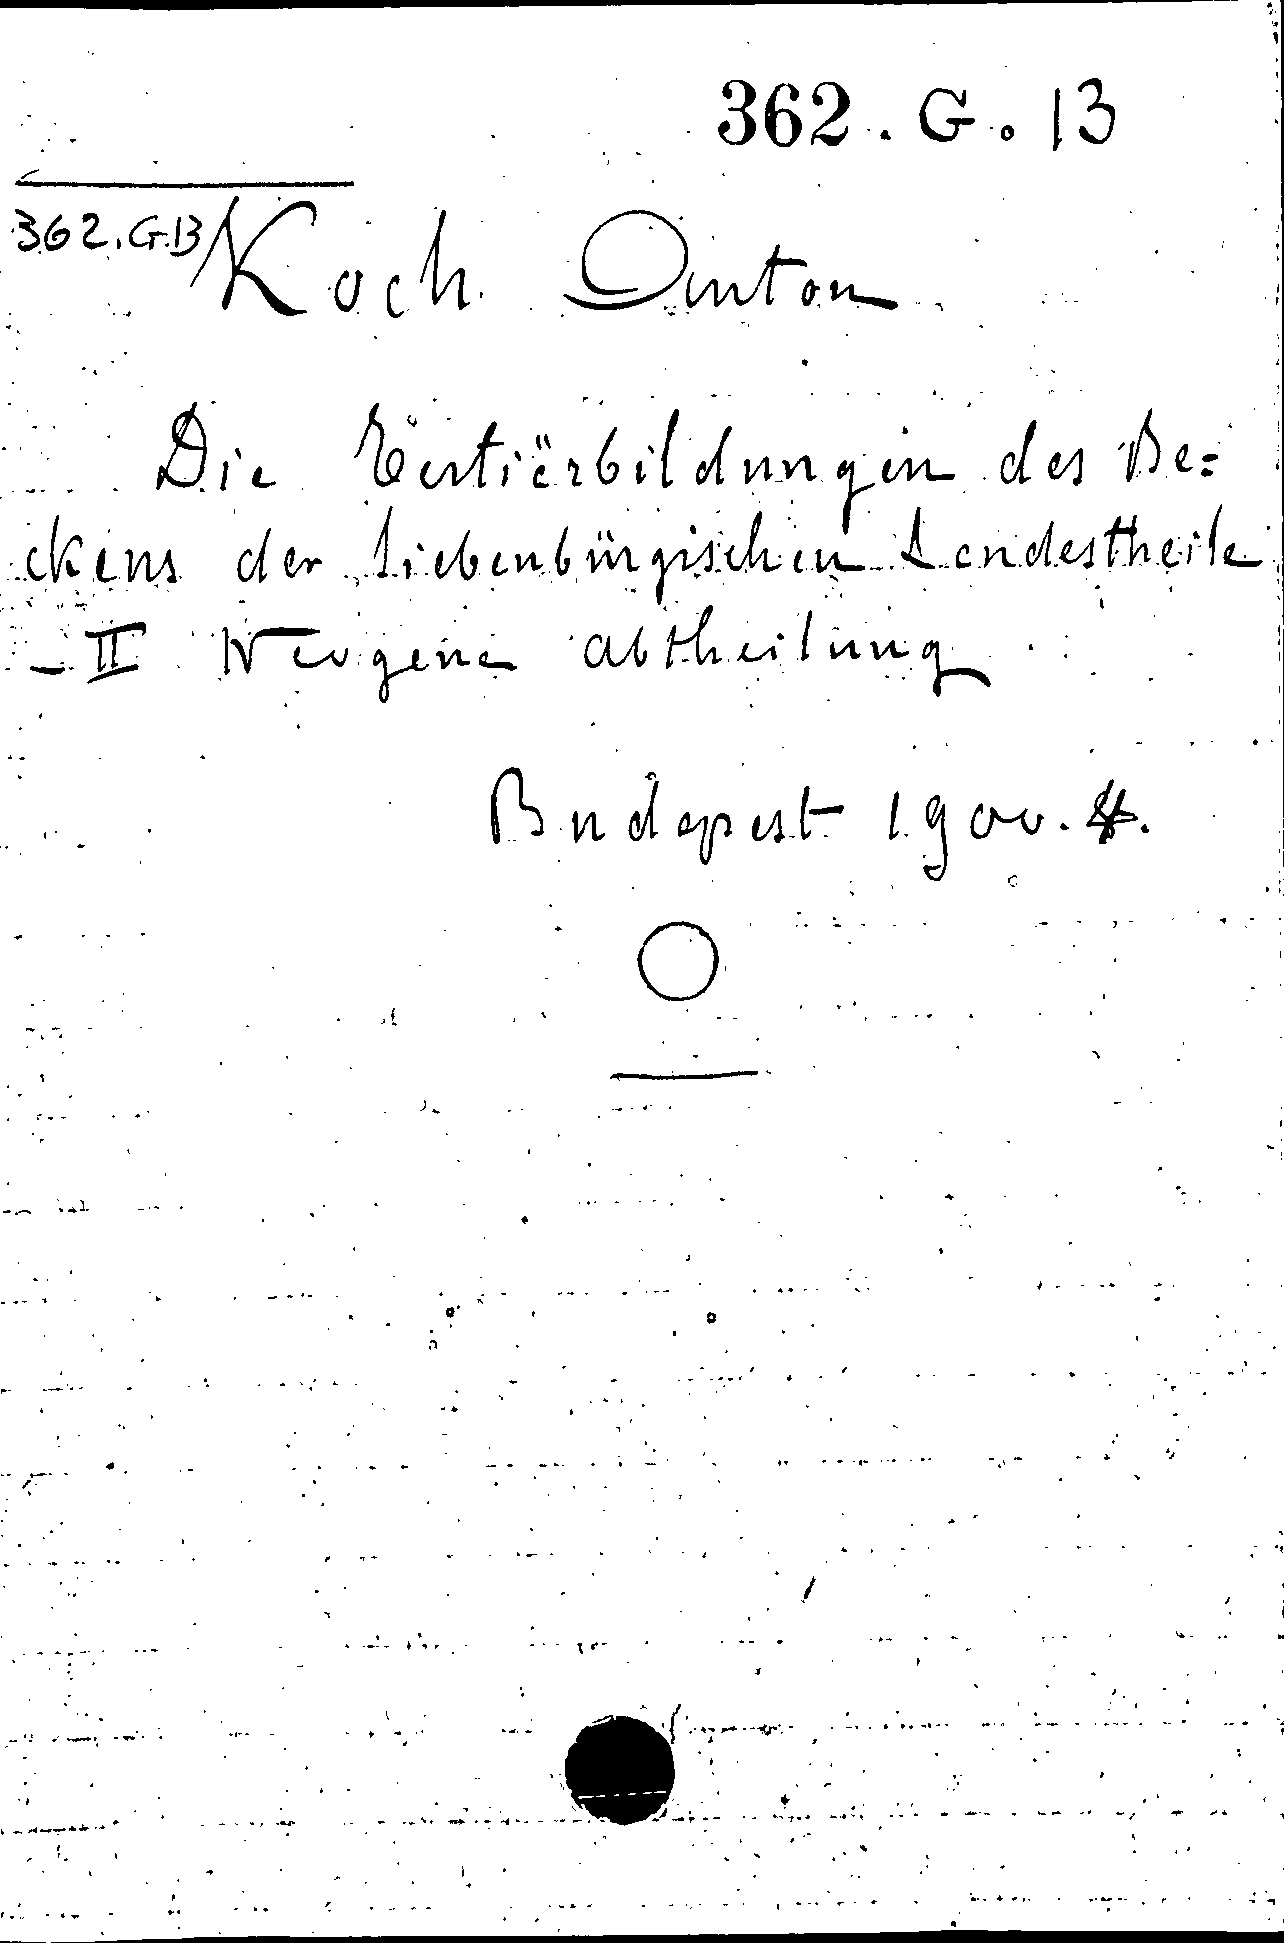 362. G. 13
362.G.13
Koch Anton
Die Tertiärbildungen des Be=
ckens der siebenbürgischen Landestheile
- II Neogene abtheilung
Budapest 1900. 8.